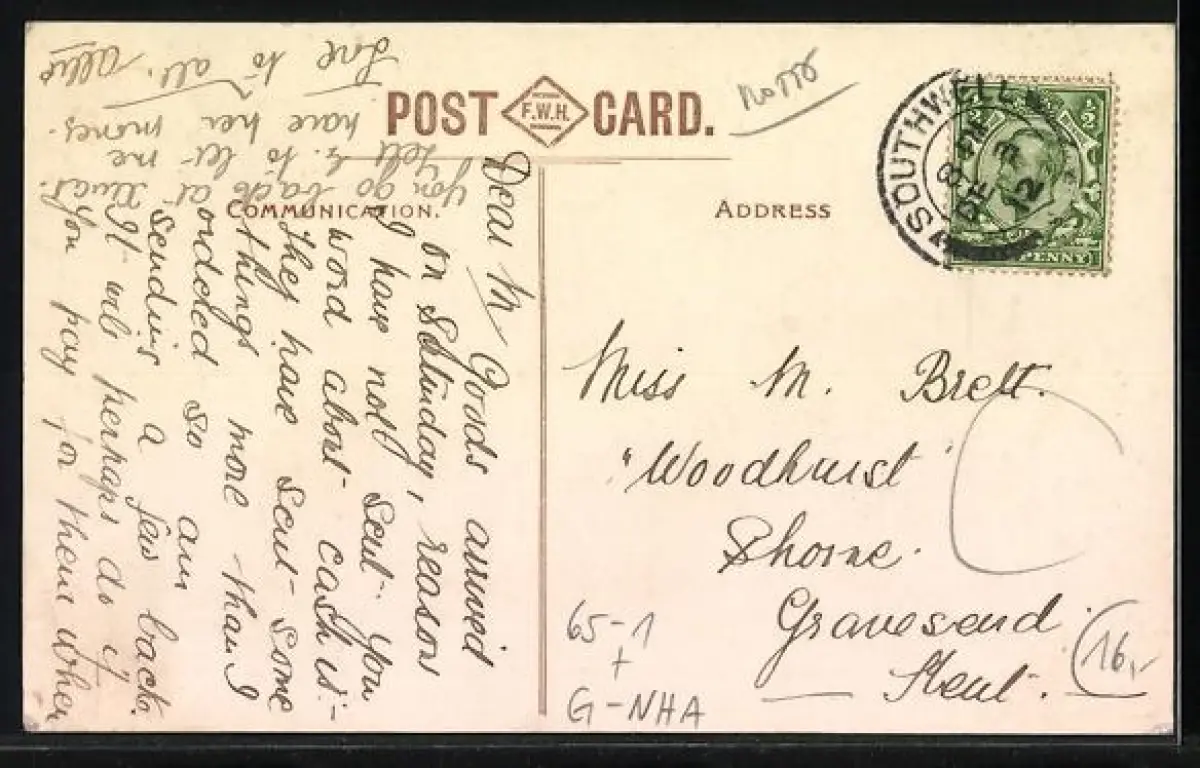 POST F.W.H. CARD.
COMMUNICATION.
ADDRESS
SOUTHWELL
12
PENNY
Dear M Goods arrived
on Saturday, reason
I have not sent you
word about cash is-
they have sent some
things more than I
ordered so am
sending a few back.
It will perhaps do if
you pay for them when
you go back at
tell to let me
have her money.
Love to all,
Miss M. Brett.
"Woodhurst"
Shorne.
Gravesend
Kent.
65-1
+
G-NHA
16,-